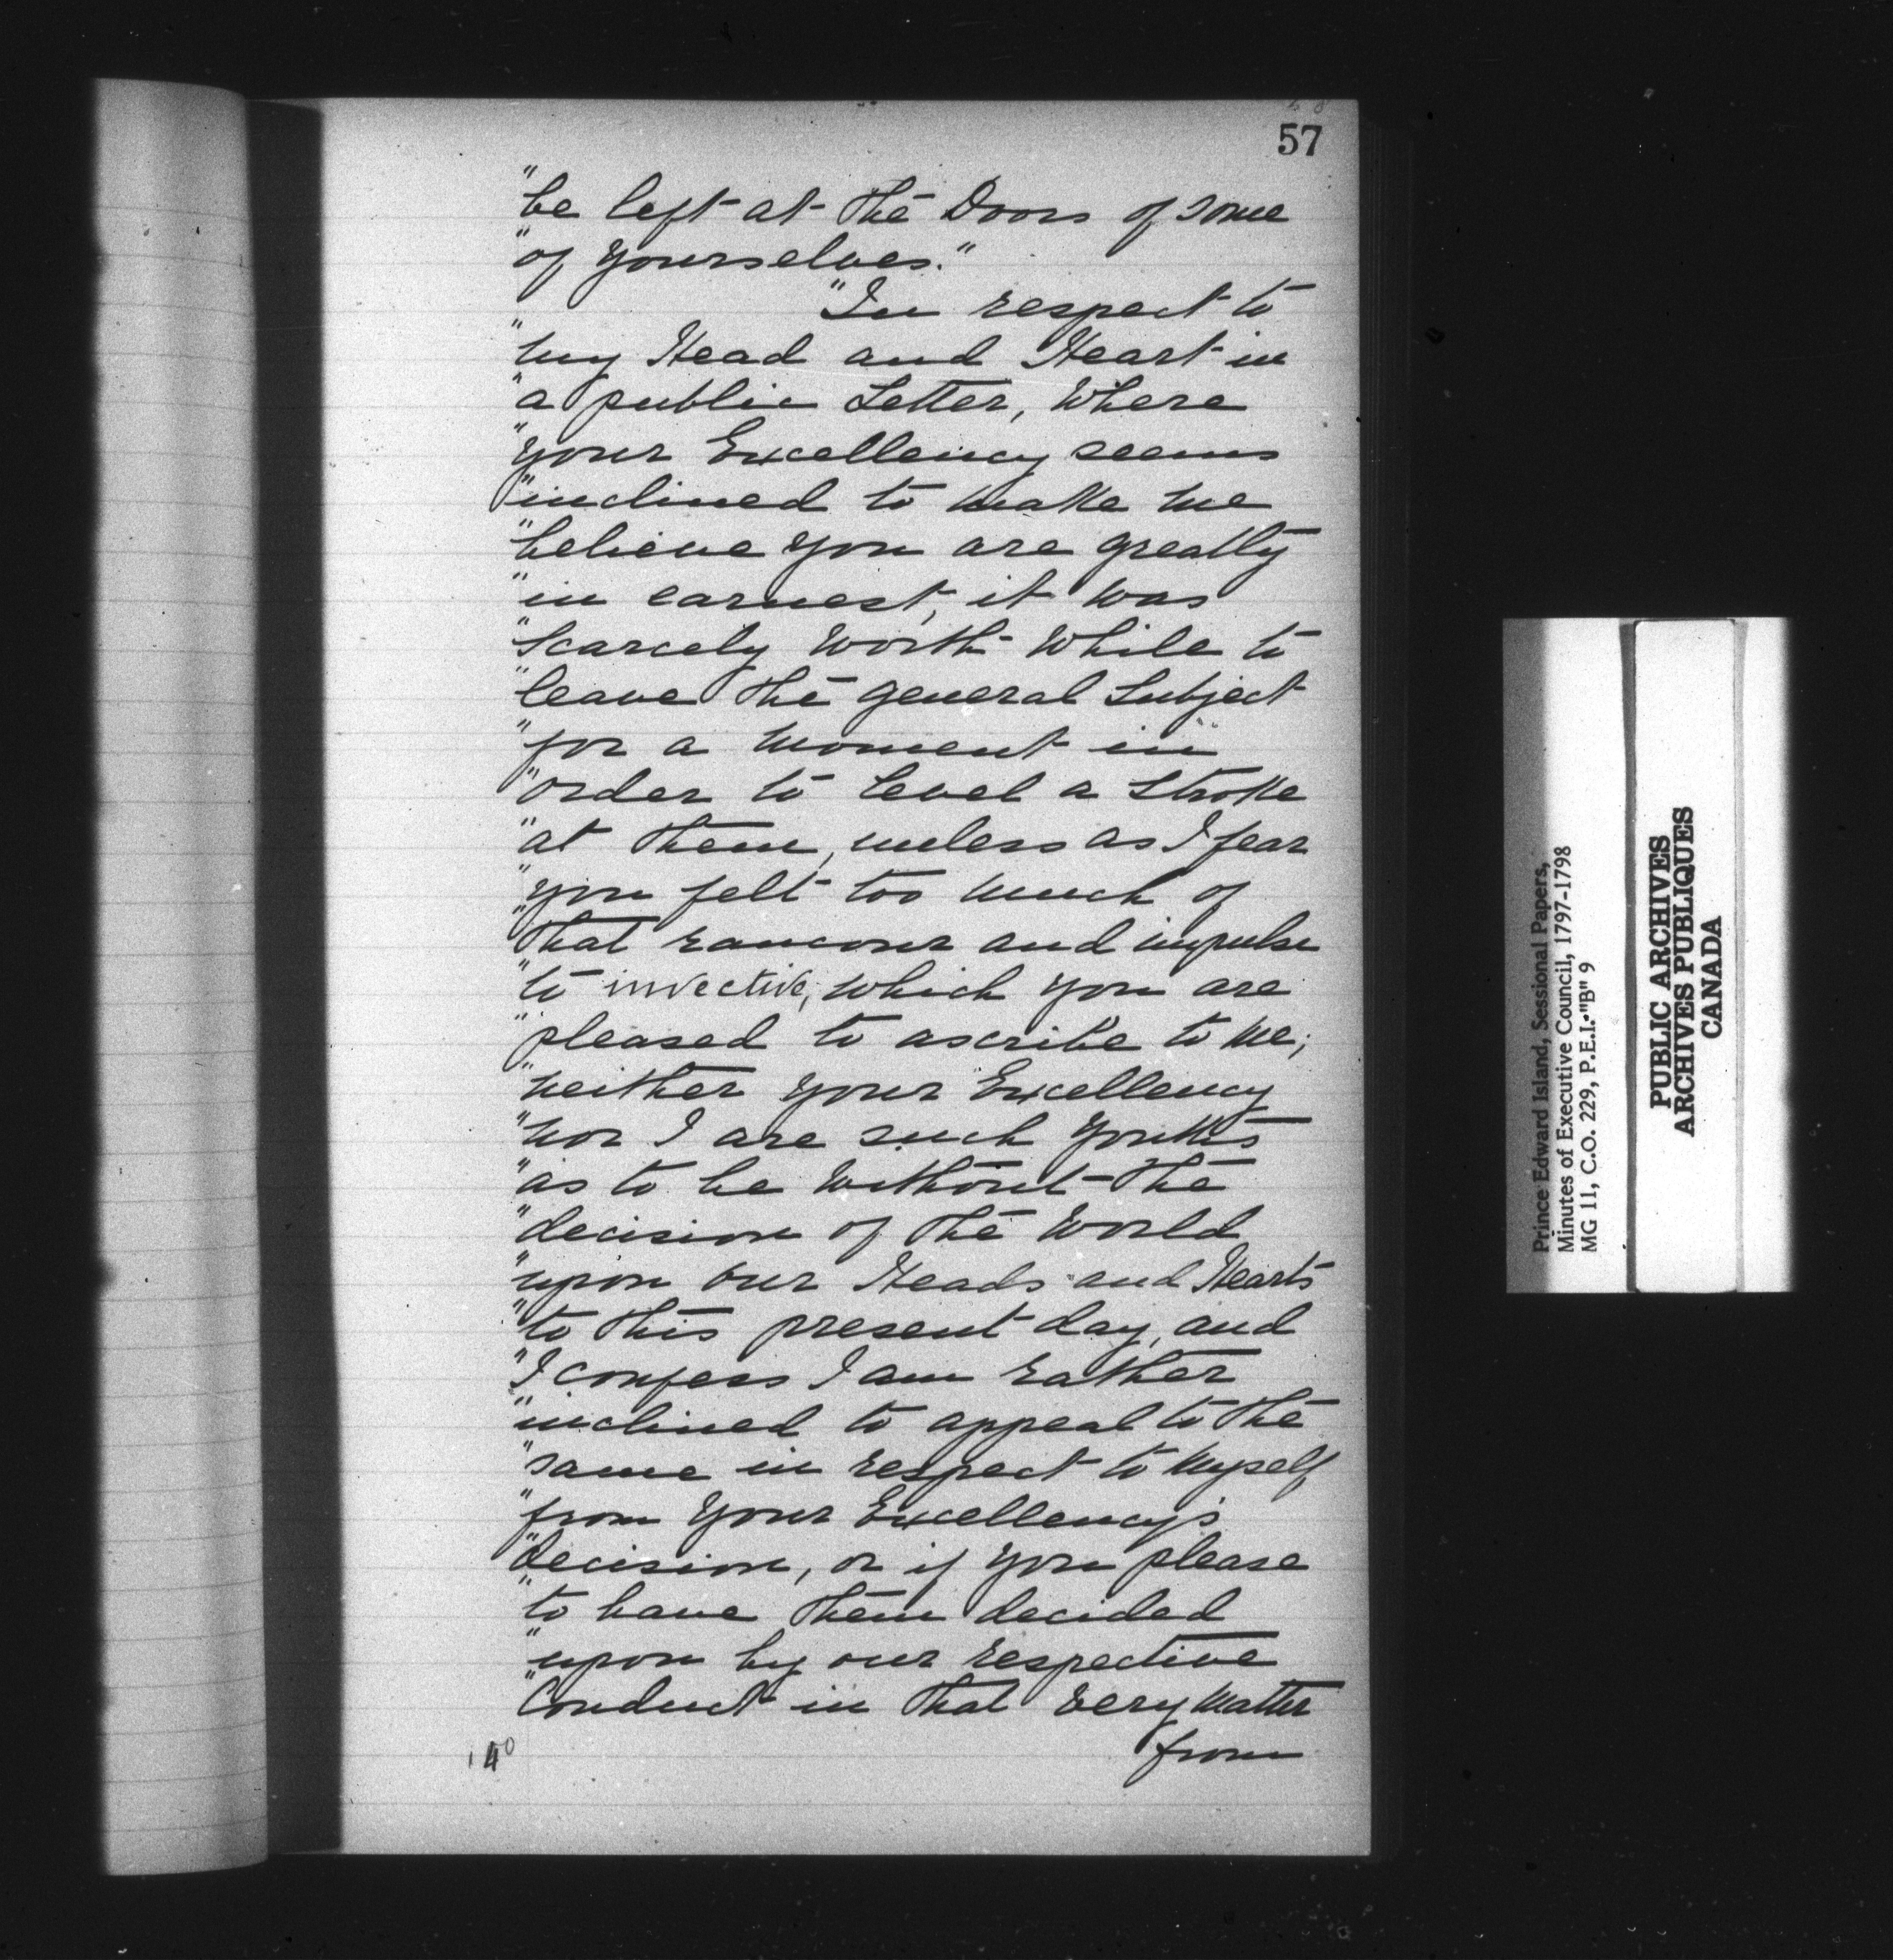 57
"be left at the Doors of some
"of yourselves."
"In respect to
"my Head and Heart in
"a public Letter, Where
"your Excellency seems
"inclined to make me
"believe you are greatly
"in earnest, it was
"Scarcely worth while to
"leave the general Subject
"for a moment in
"order to level a Stroke
"at them, unless as I fear
"you felt too much of
"that rancour and impulse
"to invective, which you are
"pleased to ascribe to me;
"neither your Excellency
"nor I are such youths
"as to be without the
"decision of the World
"upon our Heads and Hearts
"to this present day, and
"I confess I am rather
"inclined to appeal to the
"same in respect to myself
"from Your Excellency's
"decision, or if you please
"to have them decided
"upon by our respective
"Conduct in that very matter
from
Prince Edward Island, Sessional Papers,
Minutes of Executive Council, 1797-1798
MG 11, C.O. 229, P.E.I. "B" 9
PUBLIC ARCHIVES
ARCHIVES PUBLIQUES
CANADA